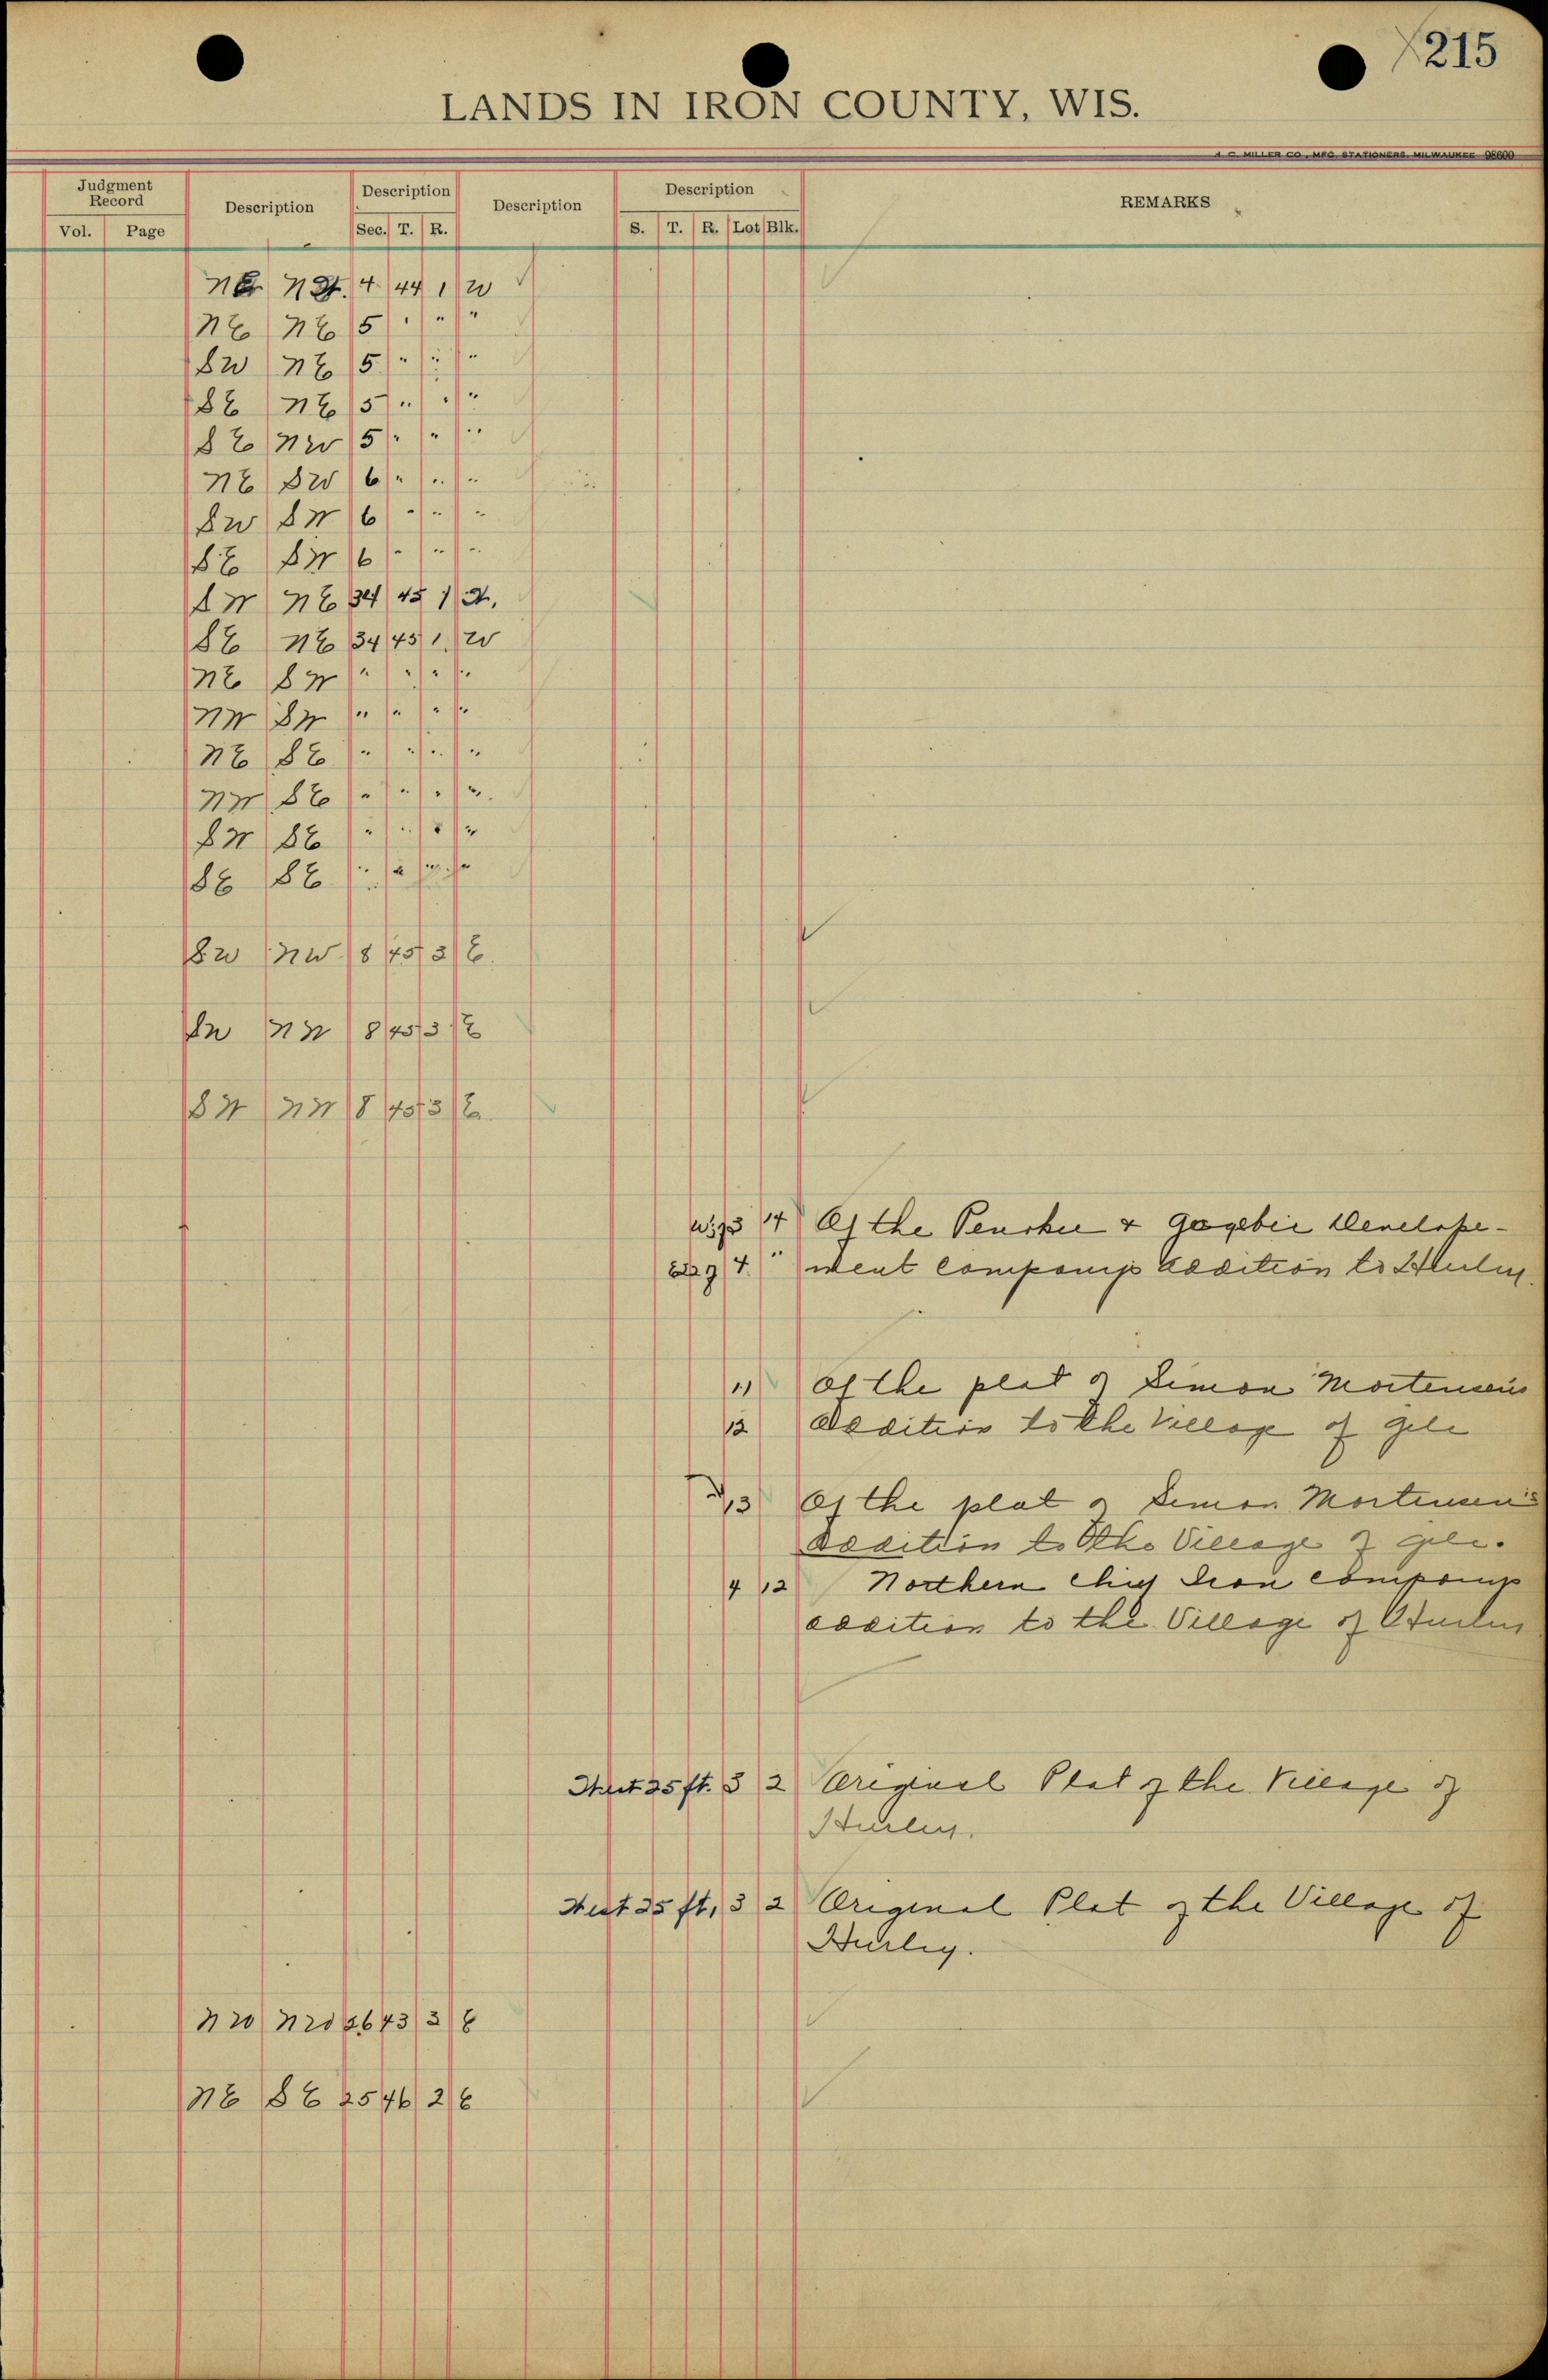 215
LANDS IN IRON COUNTY, WIS.
H. C. MILLER CO., MFG. STATIONERS, MILWAUKEE 98600
Judgment Record Description Description Description Description REMARKS
Vol. Page Sec. T. R. S. T. R. Lot Blk.
NE NW. 4 44 1 W
NE NE 5 " " "
SW NE 5 " " "
SE NE 5 " " "
SE NW 5 " " "
NE SW 6 " " "
SW SW 6 " " "
SE SW 6 " " "
SW NE 34 45 1 W.
SE NE 34 45 1 W
NE SW " " " "
NW SW " " " "
NE SE " " " "
NW SE " " " "
SW SE " " " "
SE SE " " " "
SW NW 8 45 3 E.
SW NW 8 45 3 E
SW NW 8 45 3 E.
W½ 3 14 Of the Penokee & Gogebic Develope-
4 " ment Companys Addition to Hurley.
11 Of the plat of Simon Mortensens
12 Addition to the Village of Gile
13 Of the plat of Simon Mortensen's
Addition to the Village of Gile.
4 12 Northern Chief Iron Companys
addition to the Village of Hurley
West 25 ft. 3 2 Original Plat of the Village of
Hurley.
West 25 ft, 3 2 Original Plat of the Village of
Hurley.
NW NW 26 43 3 E
NE SE 25 46 2 E